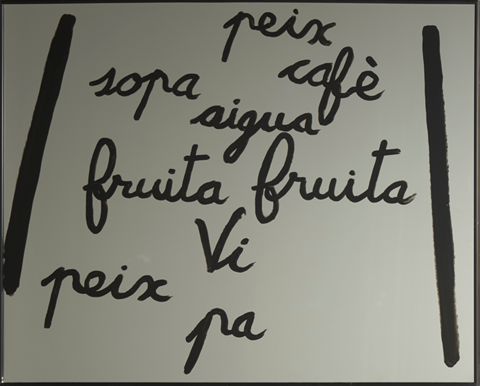 peix
cafè
sopa
aigua
fruita fruita
Vi
peix
pa